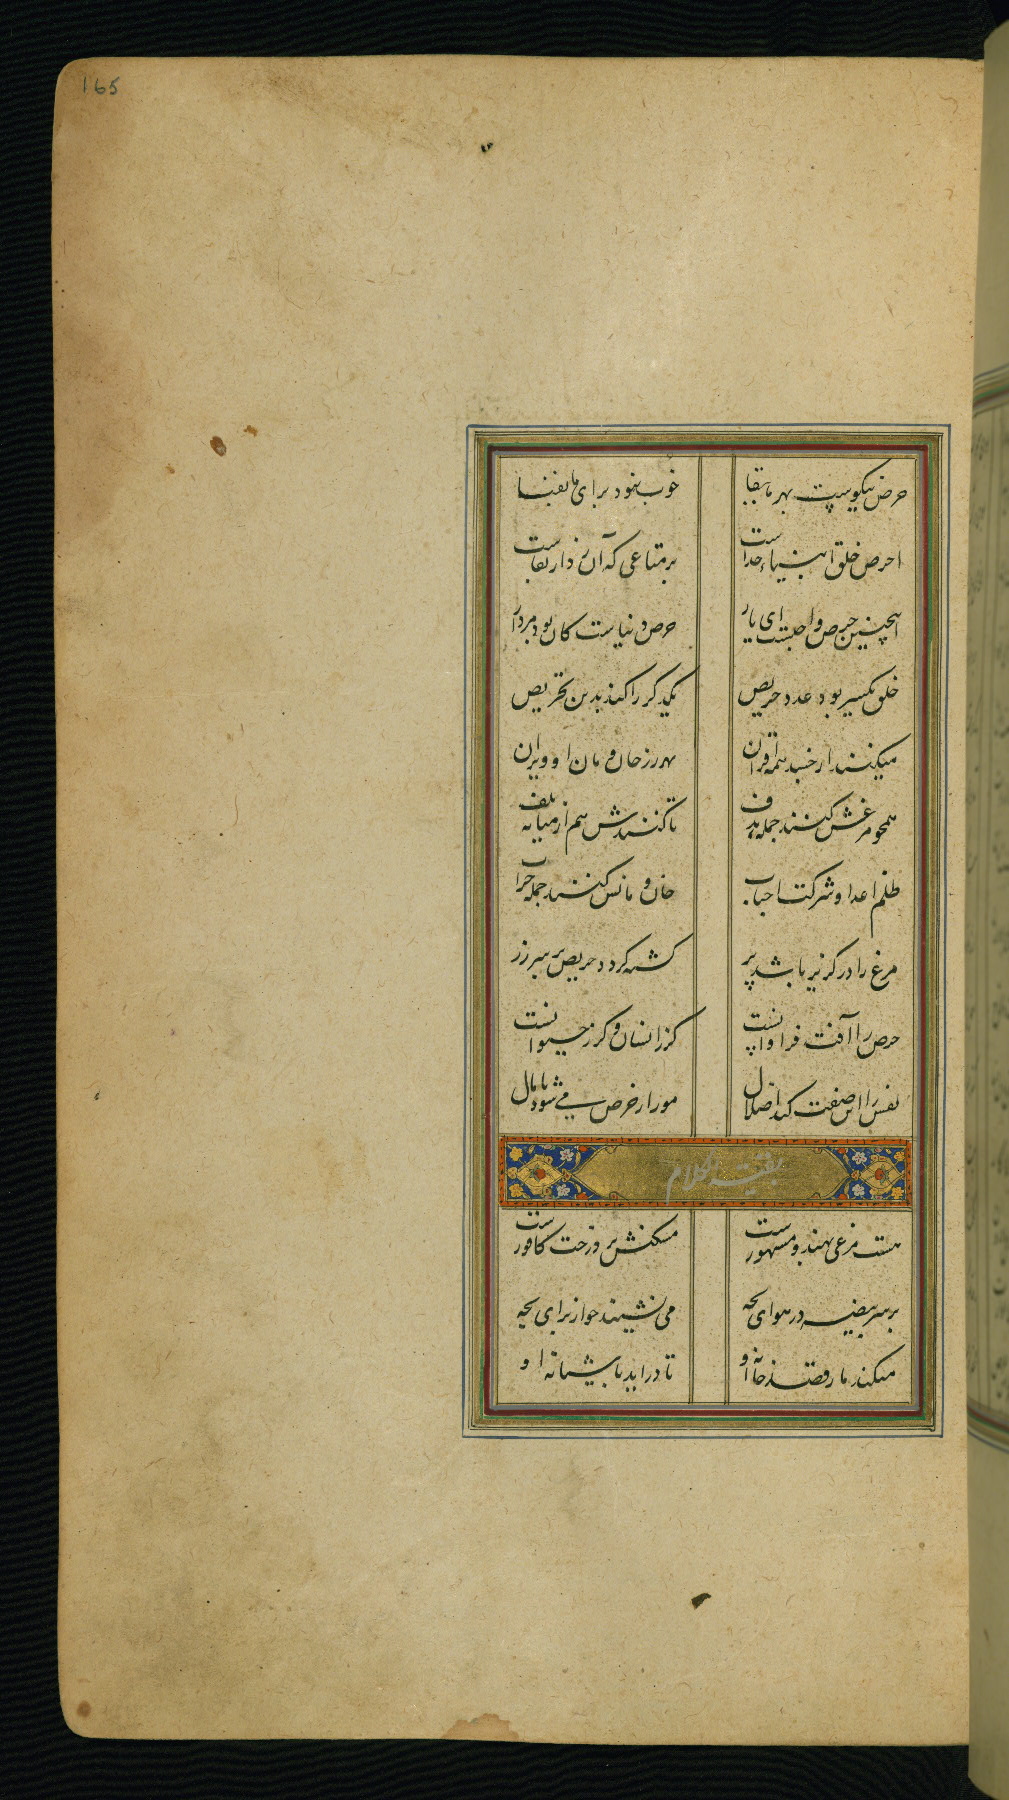 165
حرص نیکوست بهر مایبقا خوب نبود برای مایفنا
احرص خلق انبیاء خداست بر متاعی که آن ز دار بقاست
اینچنین حرص واجبست ای یار حرص دنیاست کان بود مردار
خلق یکسر بود عدد حریص یکدگر را کند بدین تحریص
میکنند از حسد همه اقران خان و مان او ویران
همچو مرغش کنند جمله هدف تا کنندش هم از میانه تلف
ظلم اعدا و شرکت احباب خان و مانش کنند جمله خراب
مرغ را در گریز باشد پر کشته گردد حریص بر سر زر
حرص را آفت فراوانست گر ز انسان و گر ز حیوانست
نفس را این صفت کند اضلال مور از حرص می شود پامال
بقیة الکلام
هست مرغی بهند و مشهورست مسکنش بر درخت کافورست
بر سر بیضه در هوای بچه می نشیند چو از برای بچه
میکند مار قصد خانه او تا در آید بآشیانه او